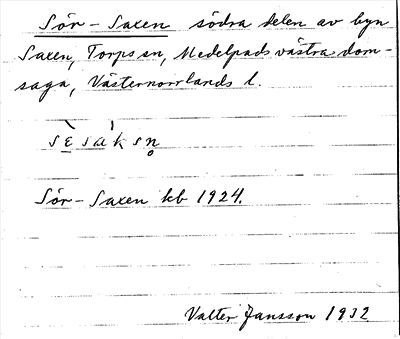 Sör-Saxen södra delen av byn
Saxen, Torps sn, Medelpads västra dom-
saga, Västernorrlands l.
sὲsάksn̥
Sör-Saxen kb 1924.
Valter Jansson 1932